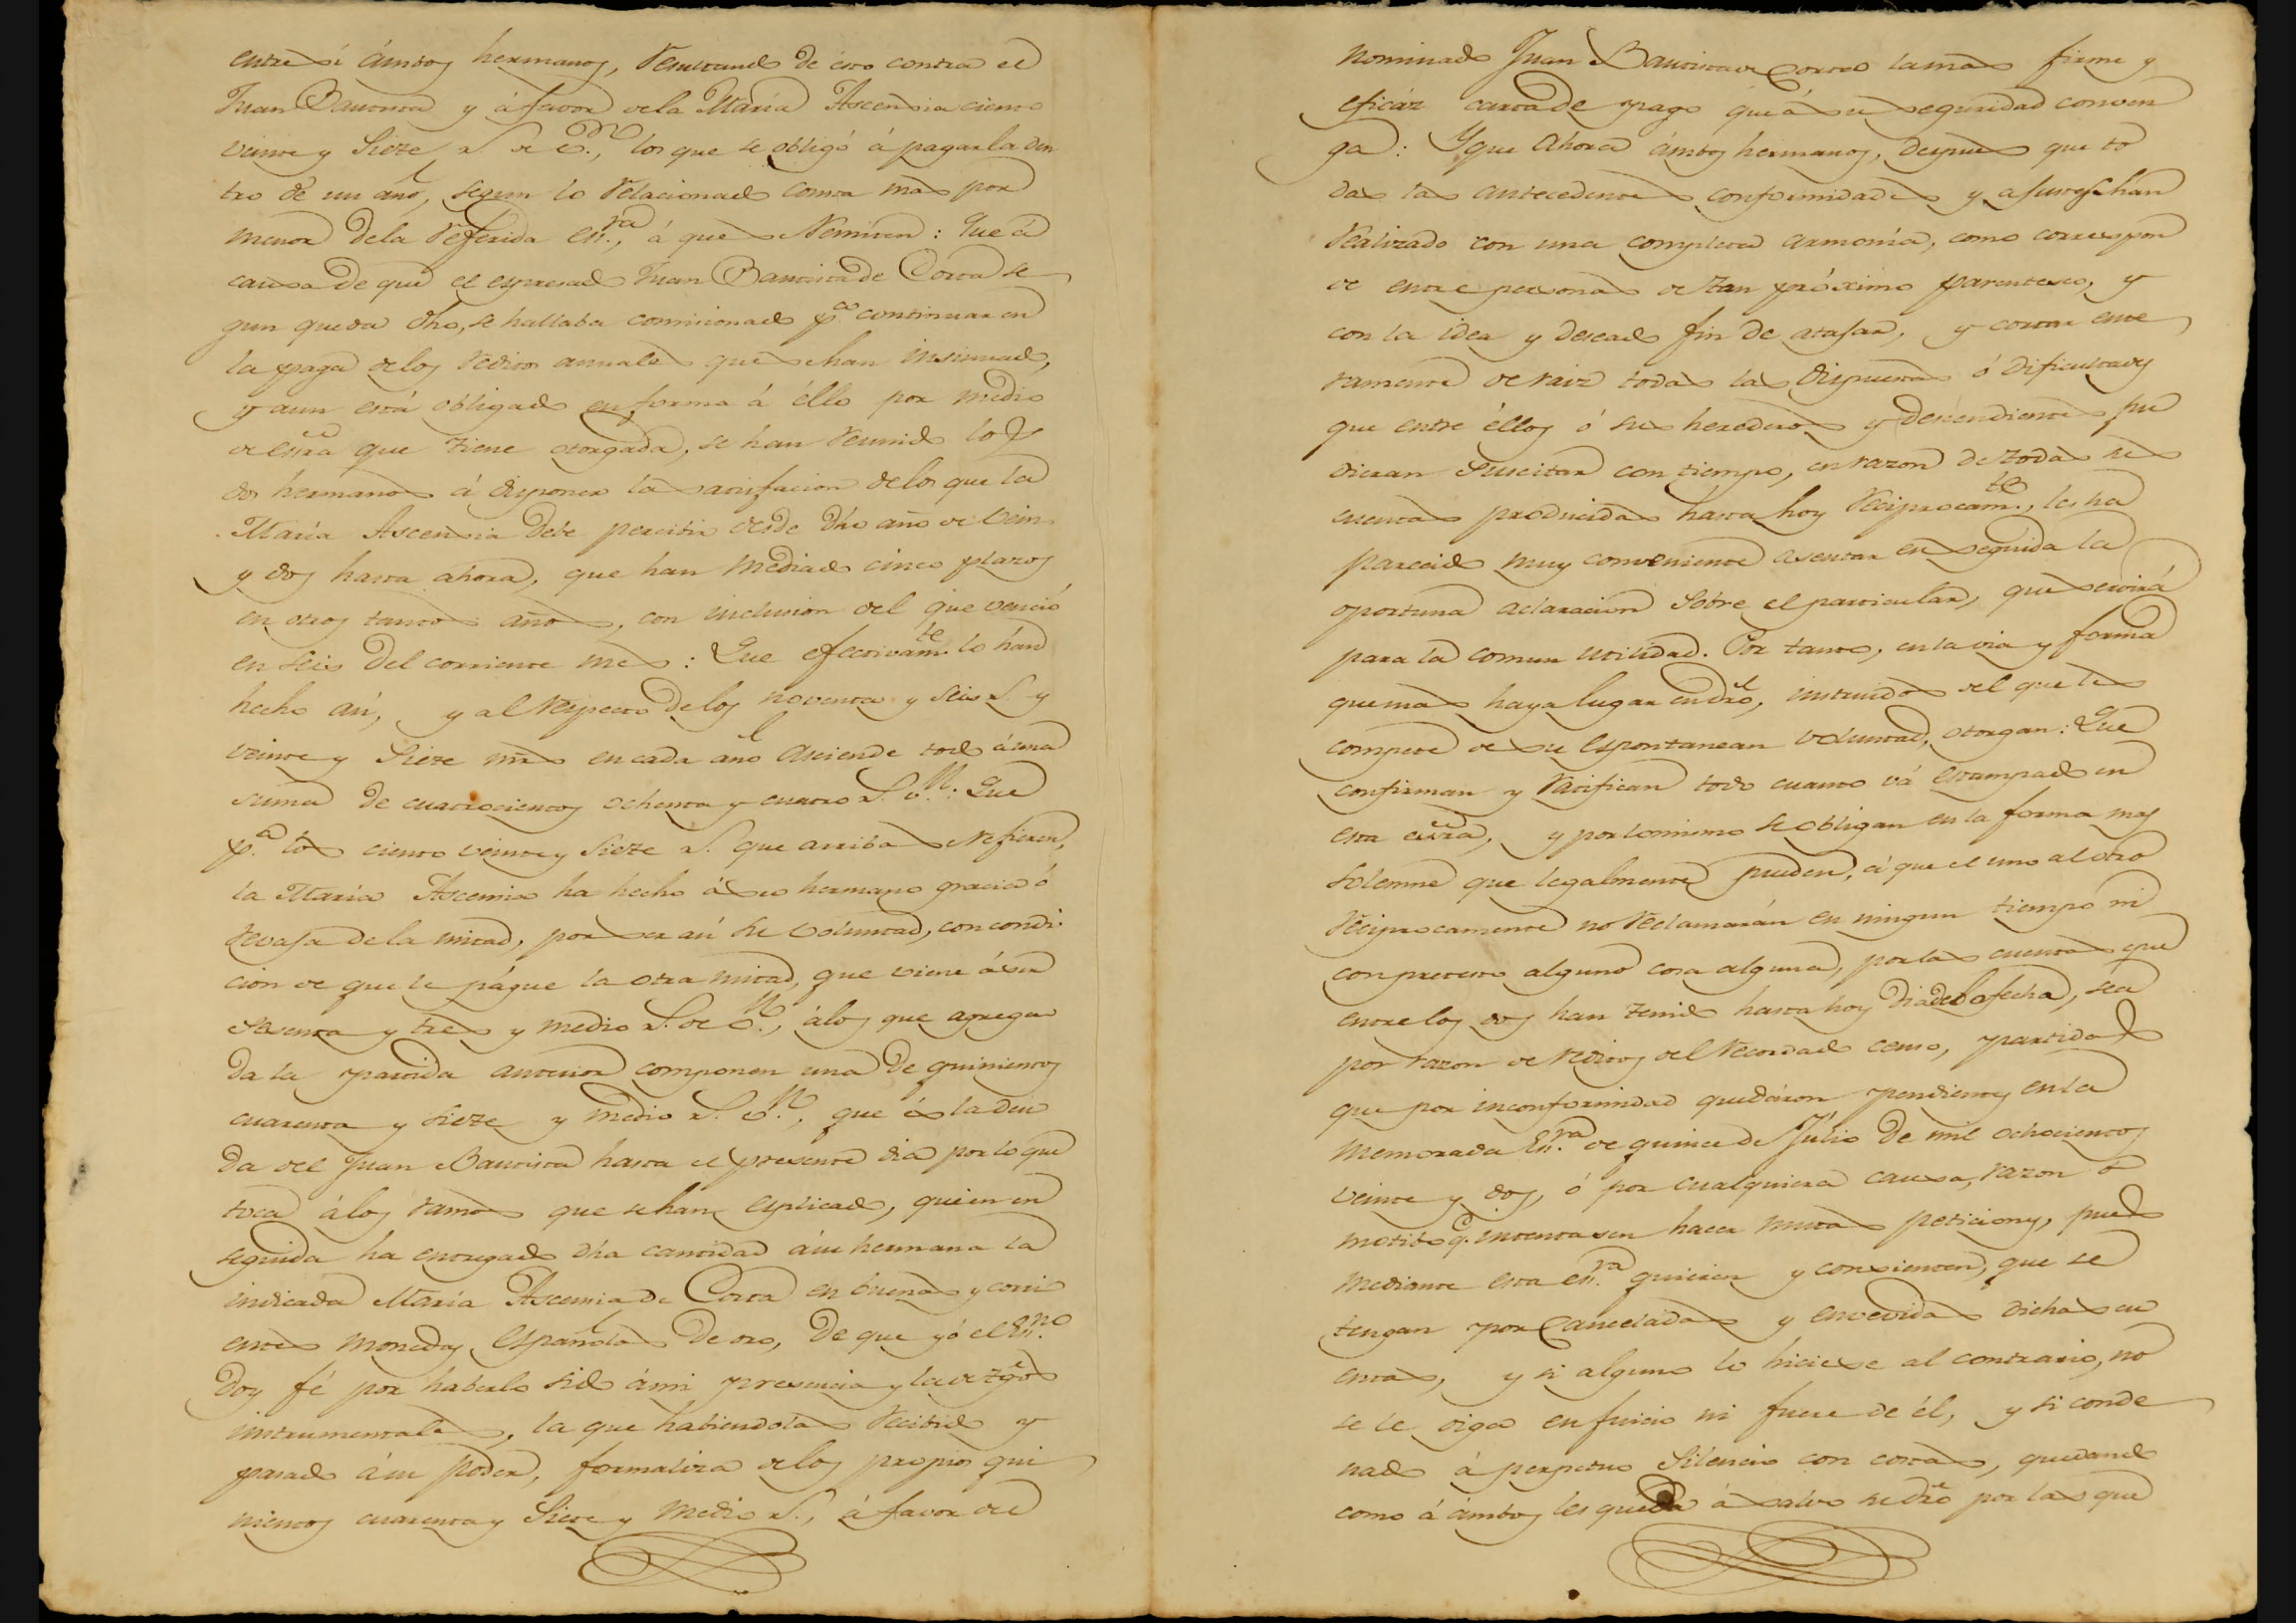 entre sí ámbos hermanos, resultando de éito contra el
Juan Bautista y á favor de la María Ascensia ciento
veinte y siete r.s de v.on, los que se obligó á pagarla den
tro de un año, segun lo relacionado consta mas por
menor de la referida es.ra, á que se remiten: Que á
causa de que el espresado Juan Bautista de Corta se
gun queda dho, se hallaba comisionado p.a continuar en
la paga de los réditos anuales que se han insinuado,
y aun está obligado en forma á éllo por medio
de es.ra que tiene otorgada, se han reunido los
dos hermanos á disponer la satisfacion de los que la
María Ascensia debe percibir desde dho año de vein
y dos hasta ahora, que han mediado cinco plazos
en otros tantos años, con inclusion del que venció
en seis del corriente mes: Que efectivam.te lo han
hecho así, y al respecto de los noventa y seis r.s y
veinte y siete mrs en cada año asciende todo á una
suma de cuatrocientos ochenta y cuatro r.s v.n: Que
p.a los ciento veinte y siete r.s que arriba se refieren,
la María Ascensia ha hecho á su hermano gracia ó
revaja de la mitad, por ser así su voluntad, con condi-
cion de que le págue la otra mitad, que viene á ser
sesenta y tres y medio r.s de v.n, á los que agrega
da la partida anterior componen una de quinientos
cuarenta y siete y medio r.s v.n, que és la deu
da del Juan Bautista hasta el presente dia por lo que
toca á los ramos que se han esplicado, quien en
seguida ha entregado dha cantidad á su hermana la
indicada María Ascensia de Corta en buenas y corri
entes monedas españolas de oro, de que yó el Es.no
doy fé por haberlo sido á mi presencia y la de tgos
instrumentales, la que habiendola recibido y
pasado á su poder, formaliza de los propios qui
nientos cuarenta y siete y medio r.s, á favor del
nominado Juan Bautista de Corta la mas firme y
eficáz carta de pago que á su seguridad conven
ga: Y que ahora ámbos hermanos, despues que to
das las antecedentes conformidades y ajustes han
realizado con una completa armonía, como correspon
de entre personas de tan próximo parentesco, y
con la idea y deseado fin de atajar, y cortar ente
ramente de raiz todas las disputas ó dificultades
que entre éllos ó sus herederos y descendientes pu
dieran suscitar con tiempo, en razon de todas sus
cuentas producidas hasta hoy reciprocam.te, les ha
parecido muy conveniente asentar en seguida la
oportuna aclaracion sobre el particular, que servirá
para la comun utilidad. Por tanto, en la via y forma
que mas haya lugar en dro, instruidos del que les
compete de su espontanean voluntad, otorgan: Que
confirman y ratifican todo cuanto vá estampado en
esta es.ra, y por lo mismo se obligan en la forma mas
solemne que legalmente pueden, á que el uno al otro
reciprocamente no reclamarán en ningun tiempo ni
con pretesto alguno cosa alguna, por las cuentas que
entre los dos han tenido hasta hoy dia de la fecha, sea
por razon de réditos del recordado censo, partidas
que por inconformidad quedáron pendientes en la
memorada Es.ra de quince de Julio de mil ochocientos
veinte y dos, ó por cualquiera causa, razon ó
motibo q.e intentasen hacer mutas peticiones, pues
mediante esta es.ra quieren y consienten, que se
tengan por canceladas y envevidas dichas cu
entas, y si alguno lo hiciese al contrario, no
se le oiga en juicio ni fuera de él, y si conde
nado á perpetuo silencio con costas, quedando
como á ámbos les queda á salvo su dro por las que